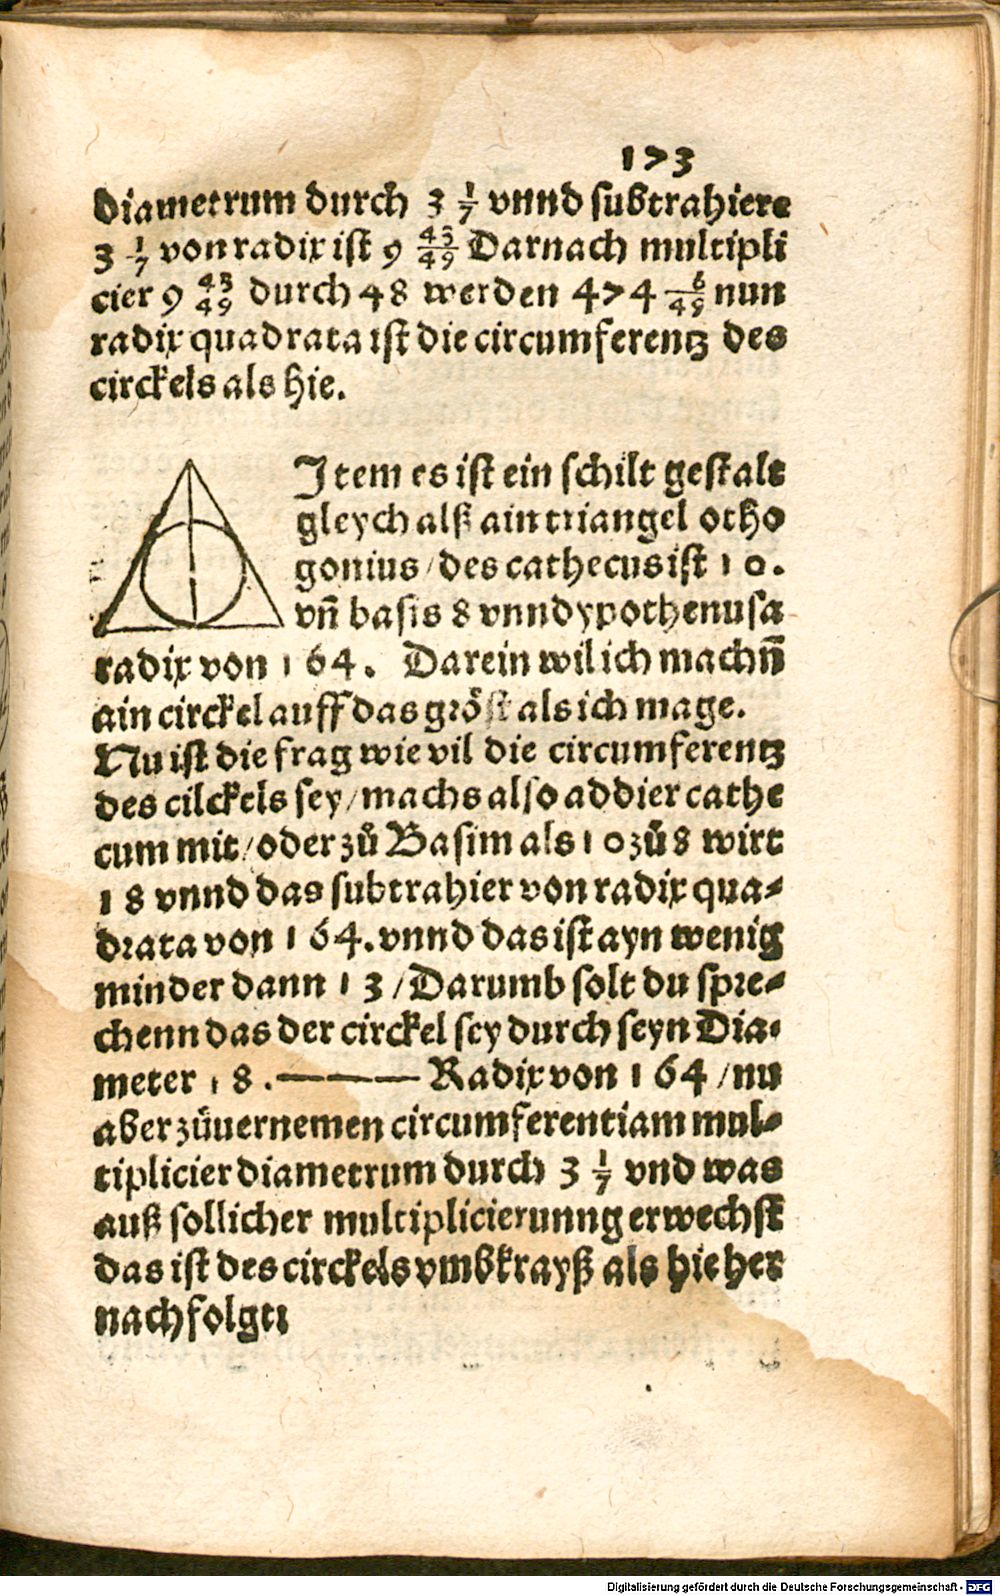 173
diametrum durch 3 1/7 vnnd subtrahiere
3 1/7 von radix ist 9 43/49 Darnach multipli
cier 9 43/49 durch 48 werden 474 6/49 nun
radix quadrata ist die circumferentz des
circkels als hie.
Item es ist ein schilt gestalt
gleych alß ain triangel otho
gonius / des cathecus ist 10.
vn̄ basis 8 vnnd ypothenusa
radix von 164. Darein wil ich machn̄
ain circkel auff das gröst als ich mage.
Nu ist die frag wie vil die circumferentz
des cilckels sey / machs also addier cathe
cum mit / oder zů Basim als 10 zů 8 wirt
18 vnnd das subtrahier von radix qua⸗
drata von 164. vnnd das ist ayn wenig
minder dann 13 / Darumb solt du spre⸗
chenn das der circkel sey durch seyn Dia⸗
meter 18. ——— Radix von 164 / nu
aber zůuernemen circumferentiam mul⸗
tiplicier diametrum durch 3 1/7 vnd was
auß sollicher multiplicierunng erwechst
das ist des circkels vmbkrayß als hie her
nachfolgt:
Digitalisierung gefördert durch die Deutsche Forschungsgemeinschaft - DFG